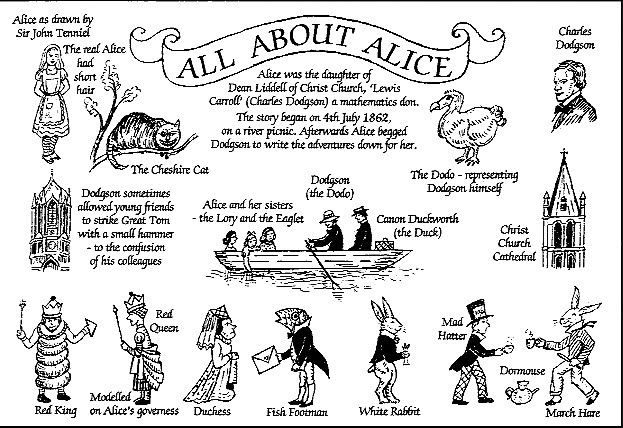 Alice as drawn by
Sir John Tenniel
The real Alice
had
short
hair
ALL ABOUT ALICE
Alice was the daughter of
Dean Liddell of Christ Church, 'Lewis
Carroll' (Charles Dodgson) a mathematics don.
The story began on 4th July 1862,
on a river picnic. Afterwards Alice begged
Dodgson to write the adventures down for her.
Charles
Dodgson
The Cheshire Cat
The Dodo - representing
Dodgson himself
Dodgson sometimes
allowed young friends
to strike Great Tom
with a small hammer
- to the confusion
of his colleagues
Alice and her sisters
- the Lory and the Eaglet
Dodgson
(the Dodo)
Canon Duckworth
(the Duck)
Christ
Church
Cathedral
Red King
Red
Queen
Modelled
on Alice's governess
Duchess
Fish Footman
White Rabbit
Mad
Hatter
Dormouse
March Hare